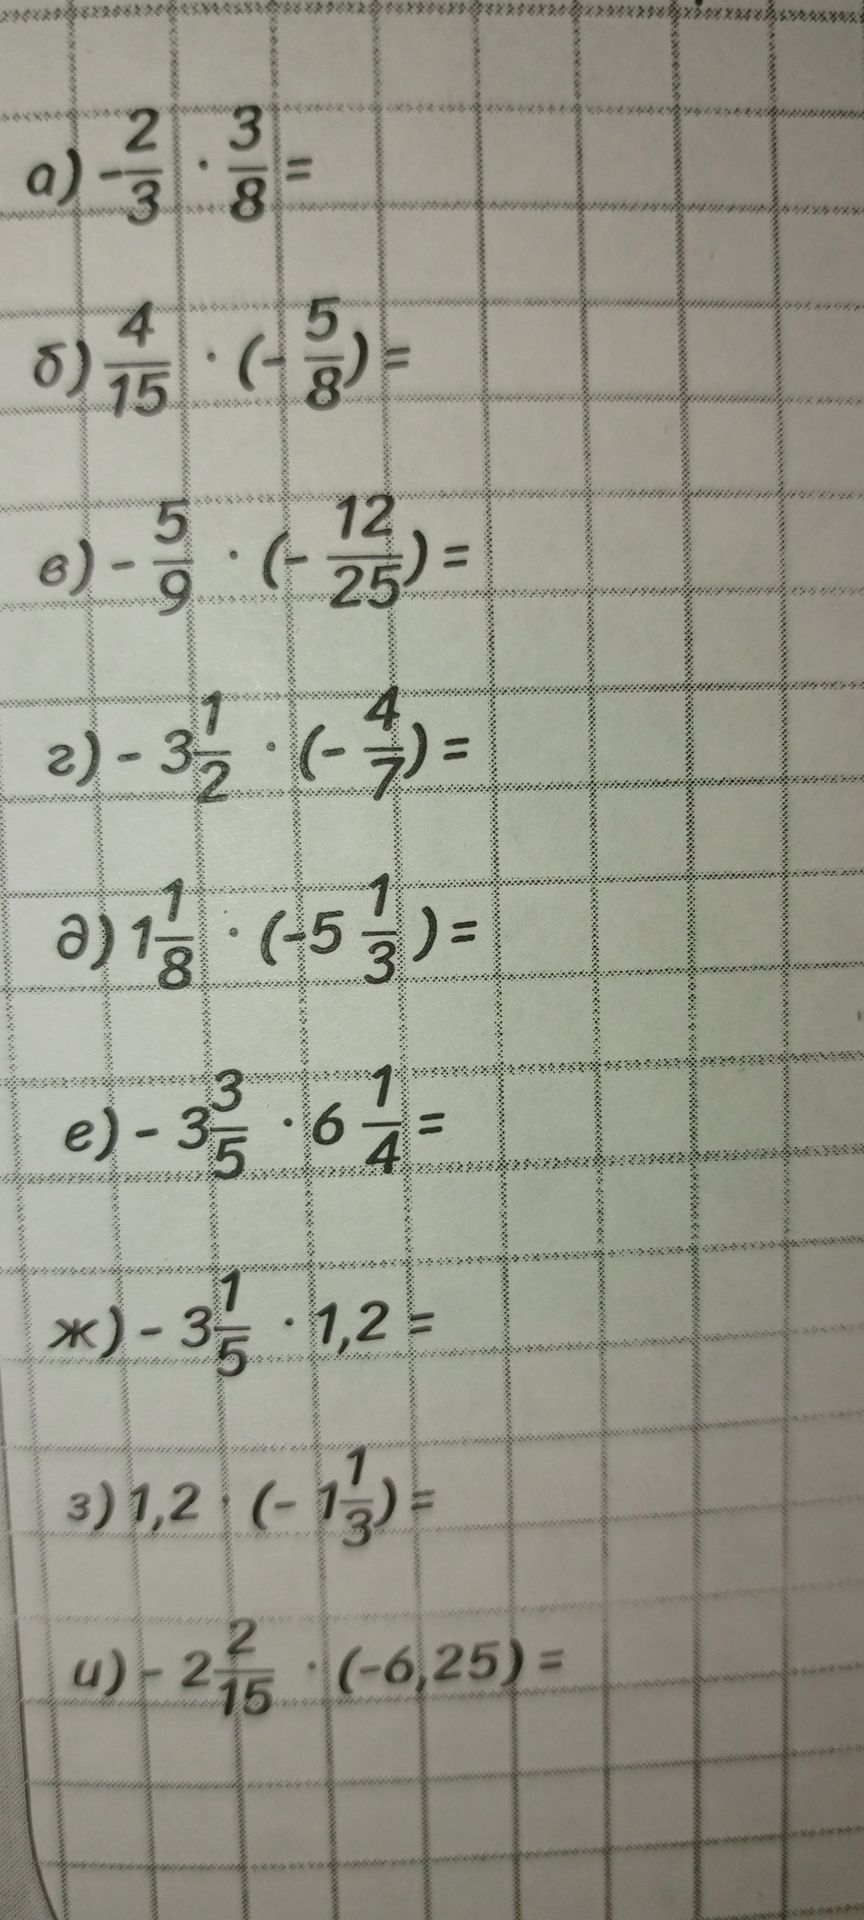 а) -2/3 · 3/8 =
б) 4/15 · (- 5/8) =
в) - 5/9 · (- 12/25) =
г) - 3 1/2 · (- 4/7) =
д) 1 1/8 · (-5 1/3) =
е) - 3 3/5 · 6 1/4 =
ж) - 3 1/5 · 1,2 =
з) 1,2 · (- 1 1/3) =
и) - 2 2/15 · (-6,25) =